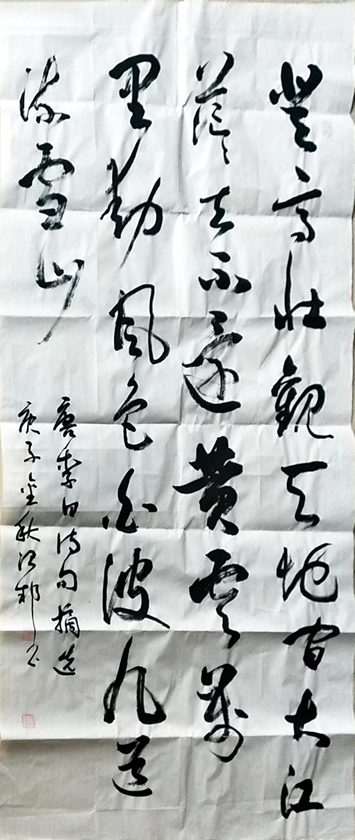 登高壯觀天地間大江
茫々去不還黄雲萬
里動風色白波九道
流雪山
唐李白诗句摘选
庚子金秋